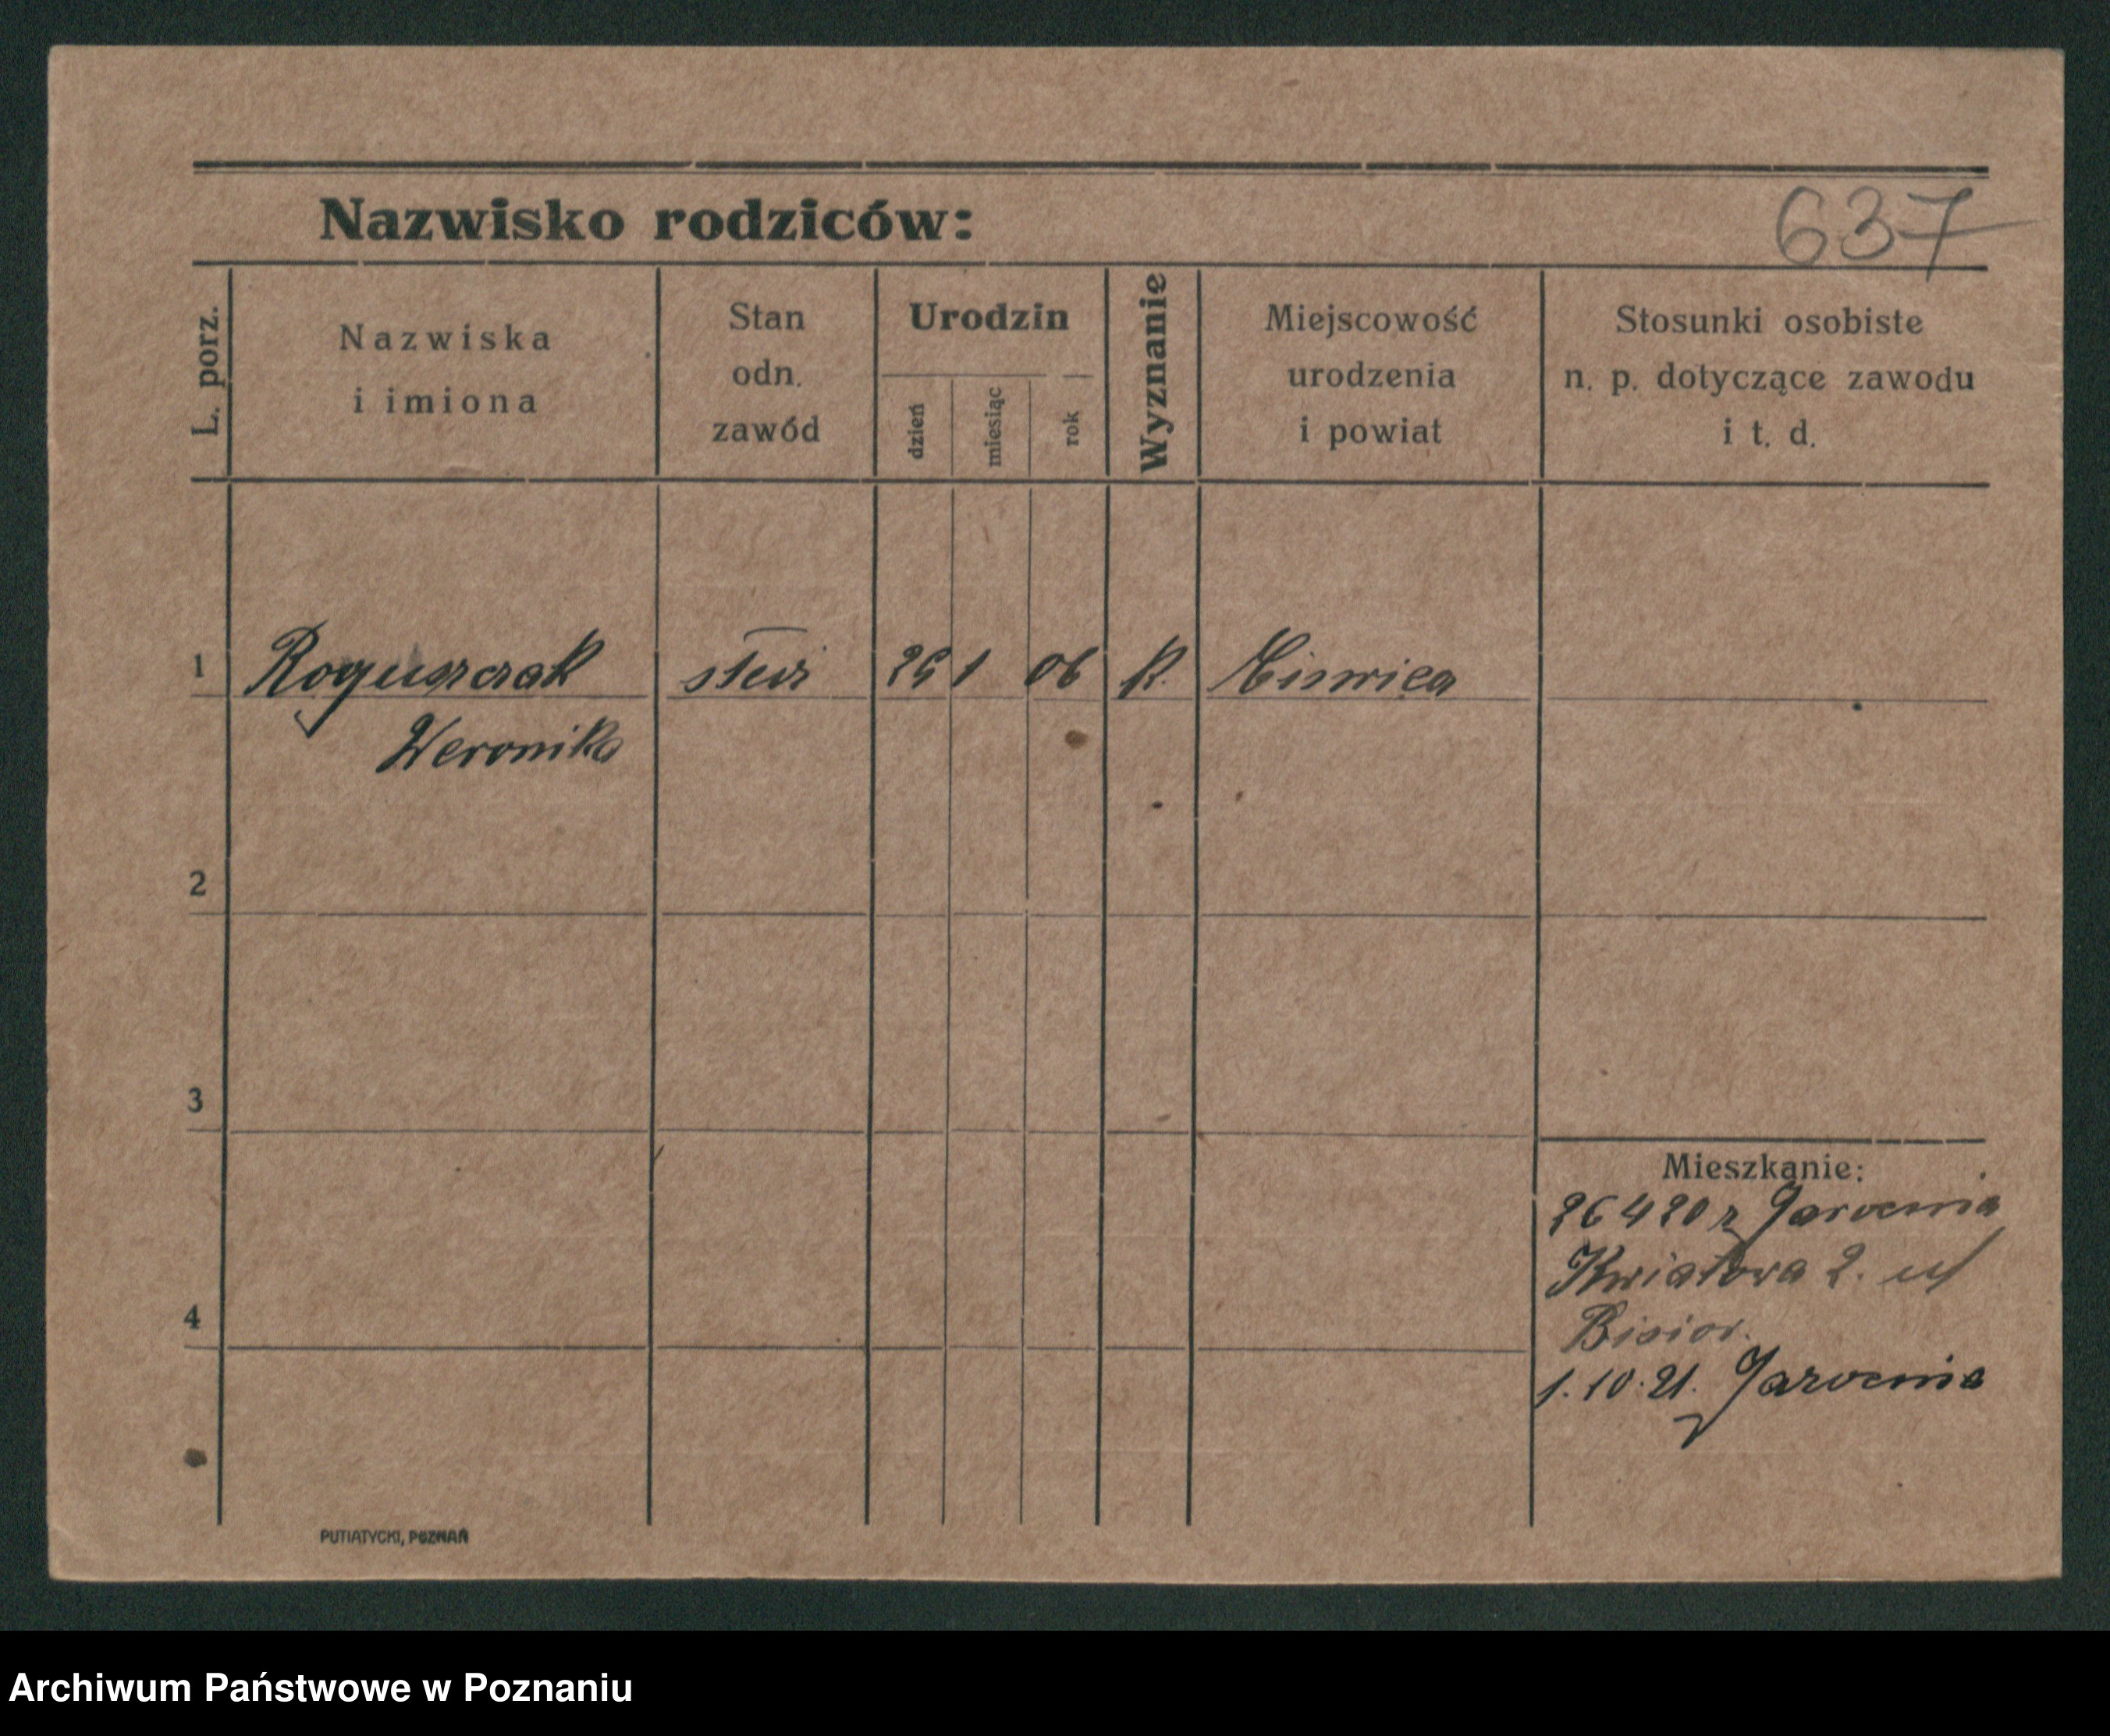 Nazwisko rodziców:
637
L. porz.
Nazwiska
i imiona
Stan
odn.
zawód
Urodzin
dzień
miesiąc
rok
Wyznanie
Miejscowość
urodzenia
i powiat
Stosunki osobiste
n. p. dotyczące zawodu
i t. d.
1 Roguszczak 1 06 K.
Weronika
2
3
4
Mieszkanie:
26 4 20 z Jarocinia
Kwiatowa 2.
1.10.21. Jarocinia
PUTIATYCKI, POZNAŃ
Archiwum Państwowe w Poznaniu